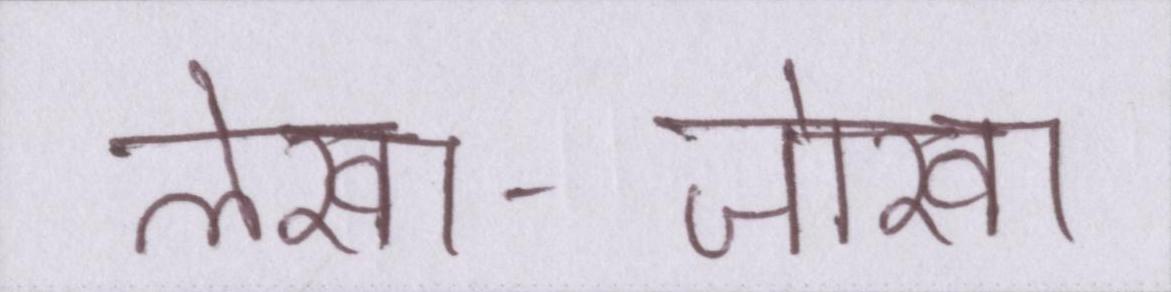 लेखा - जोखा